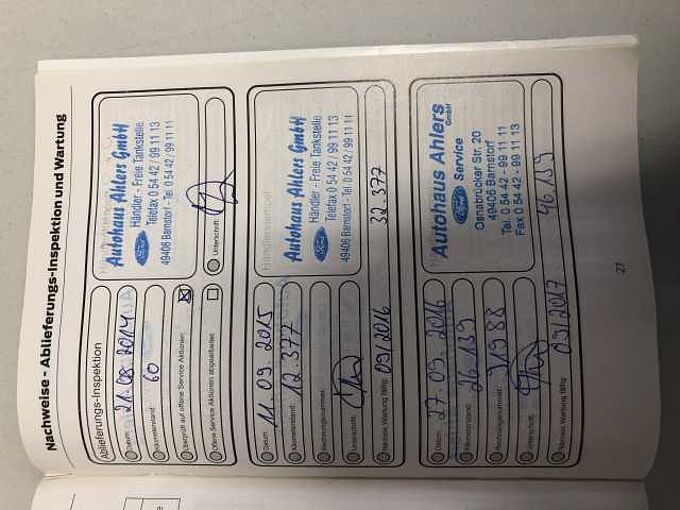 Nachweise - Ablieferungs-Inspektion und Wartung
Ablieferungs-Inspektion
Datum: 21.08.2014
Kilometerstand: 60
Überprüft auf offene Service Aktionen:
Offene Service Aktionen abgearbeitet:
Autohaus Ahlers GmbH
Ford
Händler - Freie Tankstelle
Telefax 0 54 42 / 99 11 13
49406 Barnstorf - Tel. 0 54 42 / 99 11 11
Unterschrift:
Datum: 11.09.2015
Kilometerstand: 12.377
Rechnungsnummer:
Unterschrift:
Nächste Wartung fällig: 09/2016 32.377
Händlerstempel
Autohaus Ahlers GmbH
Ford
Händler - Freie Tankstelle
Telefax 0 54 42 / 99 11 13
49406 Barnstorf - Tel. 0 54 42 / 99 11 11
Datum: 27.09.2016
Kilometerstand: 26.139
Rechnungsnummer: 31988
Unterschrift:
Nächste Wartung fällig: 09/2017 46.139
Autohaus Ahlers
GmbH
Ford Service
Osnabrücker Str. 20
49406 Barnstorf
Tel. 0 54 42 - 99 11 11
Fax 0 54 42 - 99 11 13
27